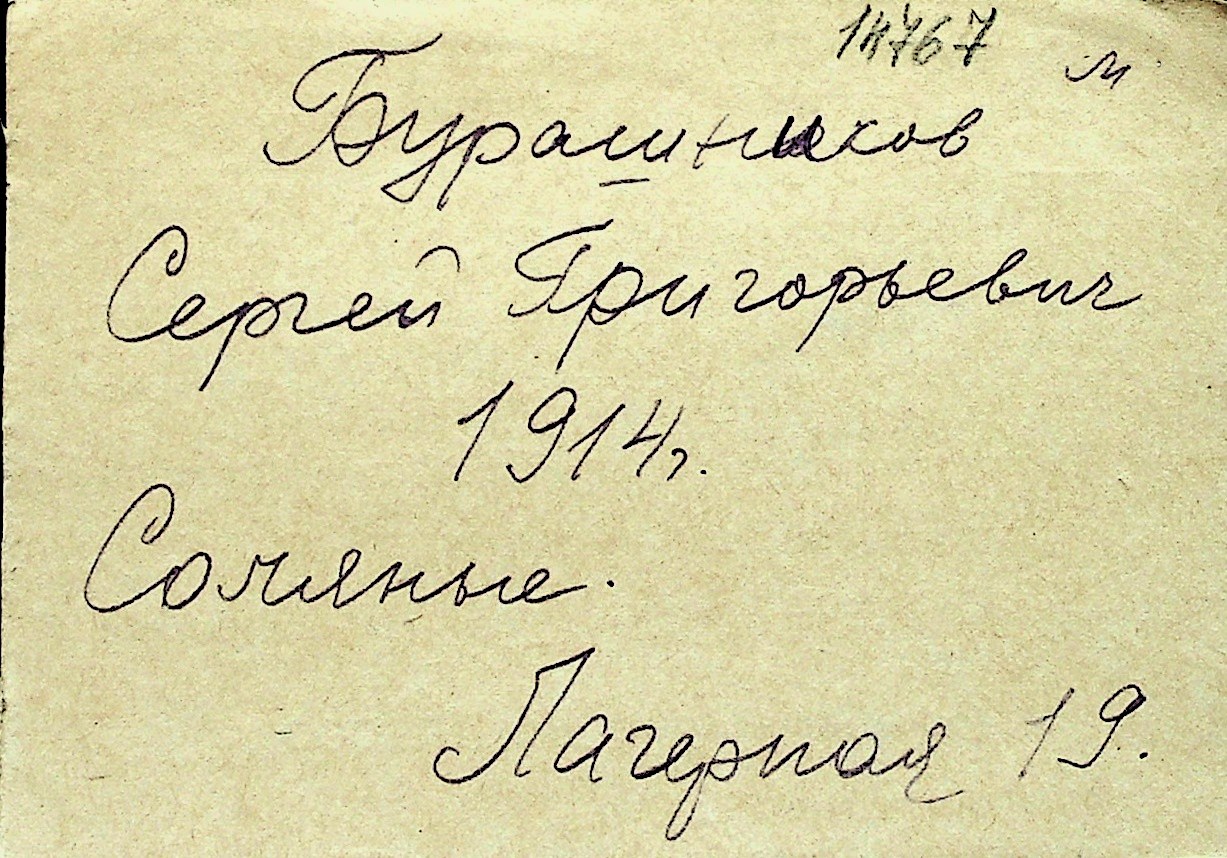 14767 м
Бурашников
Сергей Григорьевич
1914г.
Соляные.
Лагерная 19.